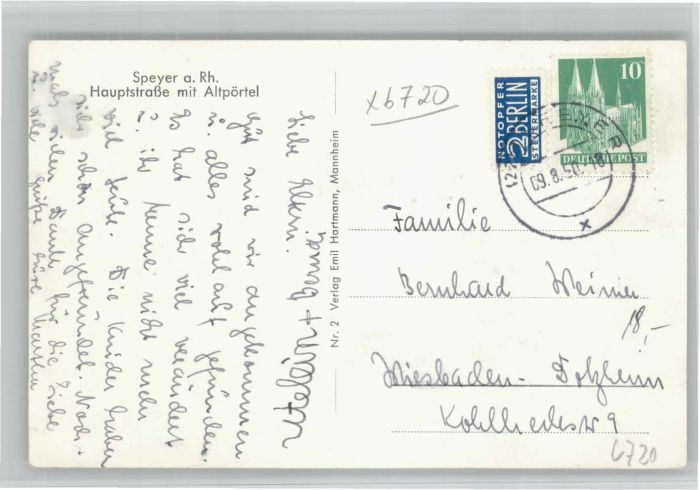 Speyer a. Rh.
Hauptstraße mit Altpörtel
xb720
NOTOPFER
2 BERLIN
STEUERMARKE
10
DEUTSCHE POST
SPEYER
09.8.50
Liebe Eltern.
Gut sind wir angekommen
u. alles wohl auf gefunden.
Es hat sich viel verändert
u. ihr kennt nicht mehr
viel Leute. Die Kinder haben
sich schon angefreundet. Noch-
mals vielen Dank für die Liebe
u. viele Grüße Eure
Nr. 2 Verlag Emil Hartmann, Mannheim
Familie
Bernhard Weimer
18,-
Wiesbaden-Dotzheim
Kohlhedes 9
6720